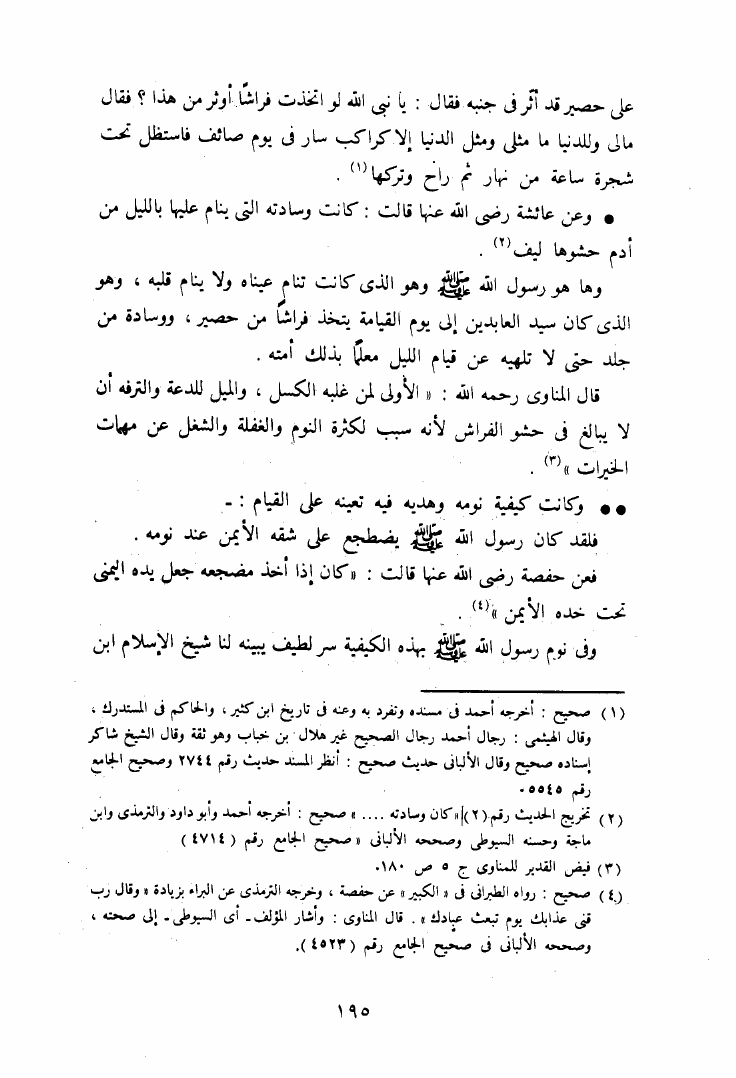 على حصير قد أثّر فى جنبه فقال : يا نبى الله لو اتخذت فراشًا أوثر من هذا ؟ فقال
مالى وللدنيا ما مثلى ومثل الدنيا إلا كراكب سار فى يوم صائف فاستظل تحت
شجرة ساعة من نهار ثم راح وتركها(١) .
● وعن عائشة رضى الله عنها قالت : كانت وسادته التى ينام عليها بالليل من
أدم حشوها ليف(٢) .
وها هو رسول الله ﷺ وهو الذى كانت تنام عيناه ولا ينام قلبه ، وهو
الذى كان سيد العابدين إلى يوم القيامة يتخذ فراشًا من حصير ، ووسادة من
جلد حتى لا تلهيه عن قيام الليل معلمًا بذلك أمته .
قال المناوى رحمه الله : « الأولى لمن غلبه الكسل ، والميل للدعة والترفه أن
لا يبالغ فى حشو الفراش لأنه سبب لكثرة النوم والغفلة والشغل عن مهمات
الخيرات »(٣) .
●● وكانت كيفية نومه وهديه فيه تعينه على القيام : ـ
فلقد كان رسول الله ﷺ يضطجع على شقه الأيمن عند نومه .
فعن حفصة رضى الله عنها قالت : « كان إذا أخذ مضجعه جعل يده اليمنى
تحت خده الأيمن »(٤) .
وفى نوم رسول الله ﷺ بهذه الكيفية سر لطيف يبينه لنا شيخ الإسلام ابن
(١) صحيح : أخرجه أحمد فى مسنده وتفرد به وعنه فى تاريخ ابن كثير ، والحاكم فى المستدرك ،
وقال الهيثمى : رجال أحمد رجال الصحيح غير هلال بن خباب وهو ثقة وقال الشيخ شاكر
إسناده صحيح وقال الألبانى حديث صحيح : أنظر المسند حديث رقم ٢٧٤٤ وصحيح الجامع
رقم ٥٥٤٥ .
(٢) تخريج الحديث رقم (٢) « كان وسادته .... » صحيح : أخرجه أحمد وأبو داود والترمذى وابن
ماجة وحسنه السيوطى وصححه الألبانى « صحيح الجامع رقم ( ٤٧١٤ )
(٣) فيض القدير للمناوى ج ٥ ص ١٨٠ .
(٤) صحيح : رواه الطبرانى فى « الكبير » عن حفصة ، وخرجه الترمذى عن البراء بزيادة « وقال رب
قنى عذابك يوم تبعث عبادك » . قال المناوى : وأشار المؤلف ـ أى السيوطى ـ إلى صحته ،
وصححه الألبانى فى صحيح الجامع رقم ( ٤٥٢٣ ) .
١٩٥